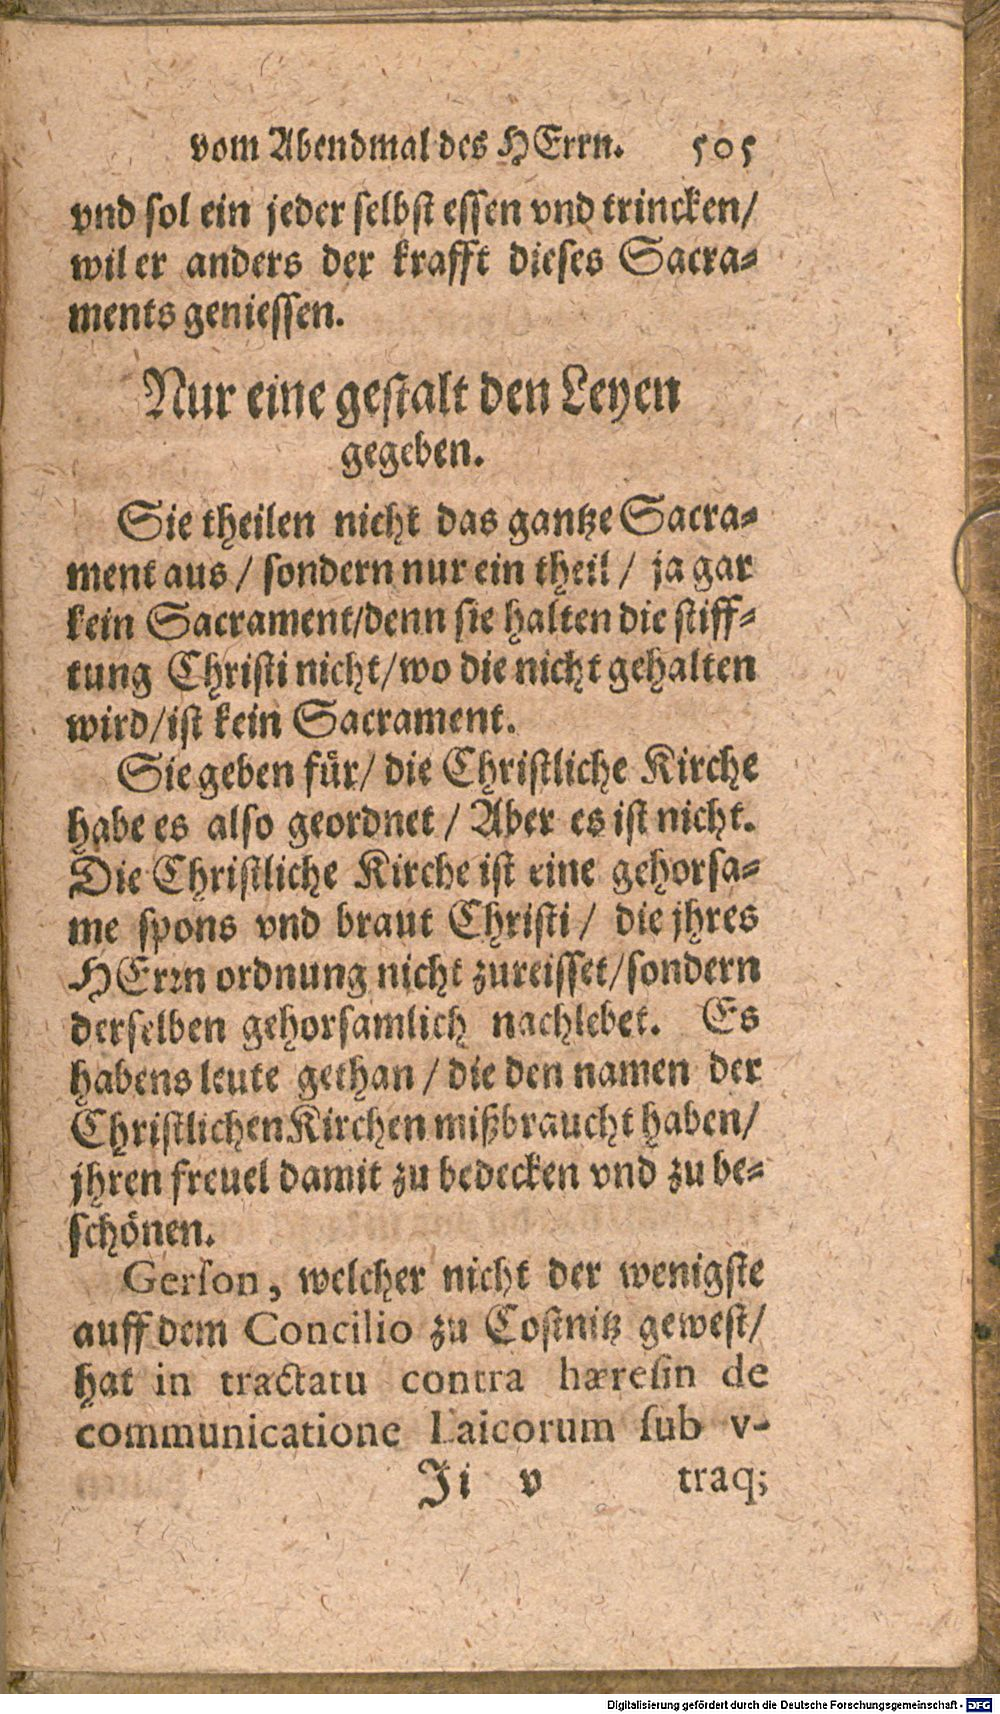 vom Abendmal des HErrn. 505
vnd sol ein jeder selbst essen vnd trincken/
wil er anders der krafft dieses Sacra-
ments geniessen.
Nur eine gestalt den Leyen
gegeben.
Sie theilen nicht das gantze Sacra-
ment aus / sondern nur ein theil / ja gar
kein Sacrament/denn sie halten die stiff-
tung Christi nicht/wo die nicht gehalten
wird/ist kein Sacrament.
Sie geben für/ die Christliche Kirche
habe es also geordnet / Aber es ist nicht.
Die Christliche Kirche ist eine gehorsa-
me spons vnd braut Christi / die jhres
HErrn ordnung nicht zureisset/sondern
derselben gehorsamlich nachlebet. Es
habens leute gethan / die den namen der
Christlichen Kirchen mißbraucht haben/
jhren freuel damit zu bedecken vnd zu be-
schönen.
Gerson, welcher nicht der wenigste
auff dem Concilio zu Costnitz gewest/
hat in tractatu contra hæresin de
communicatione Laicorum sub v-
Ji v traq;
Digitalisierung gefördert durch die Deutsche Forschungsgemeinschaft - DFG